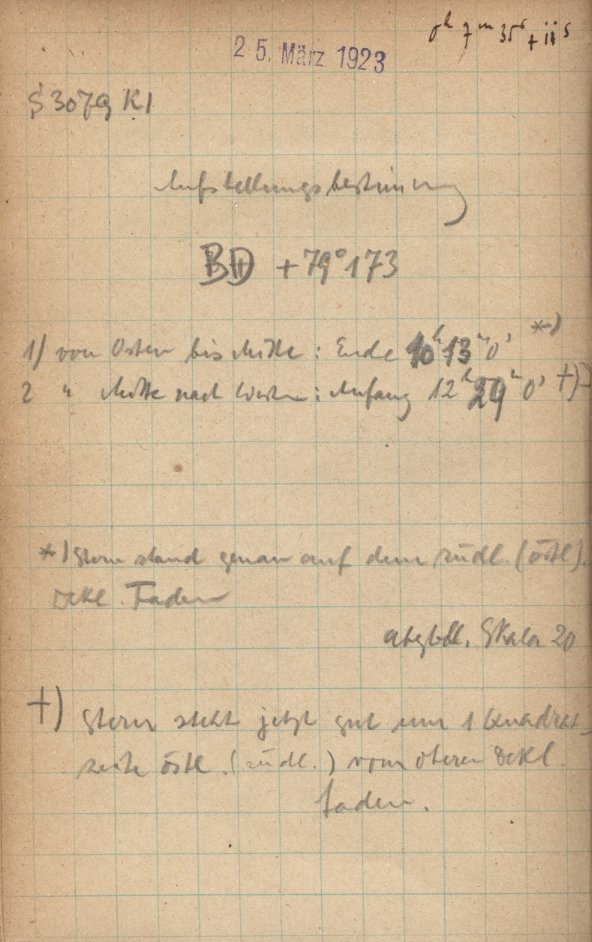 0ʰ 7ᵐ 35ˢ + 11ˢ
25. März 1923
S 3079 K1
Aufstellungsbestimmung
BD +79°173
1) von Osten bis Mitte: Ende 10ʰ 13ᵐ 0ˢ *)
2 " Mitte nach Westen: Anfang 12ʰ 29ᵐ 0ˢ †)
*) Stern stand genau auf dem südl. (östl).
Dekl. Faden
abgebl. Skala 20
†) Stern steht jetzt gut um 1 Quadrat-
seite östl. (südl.) vom oberen Dekl.
faden.